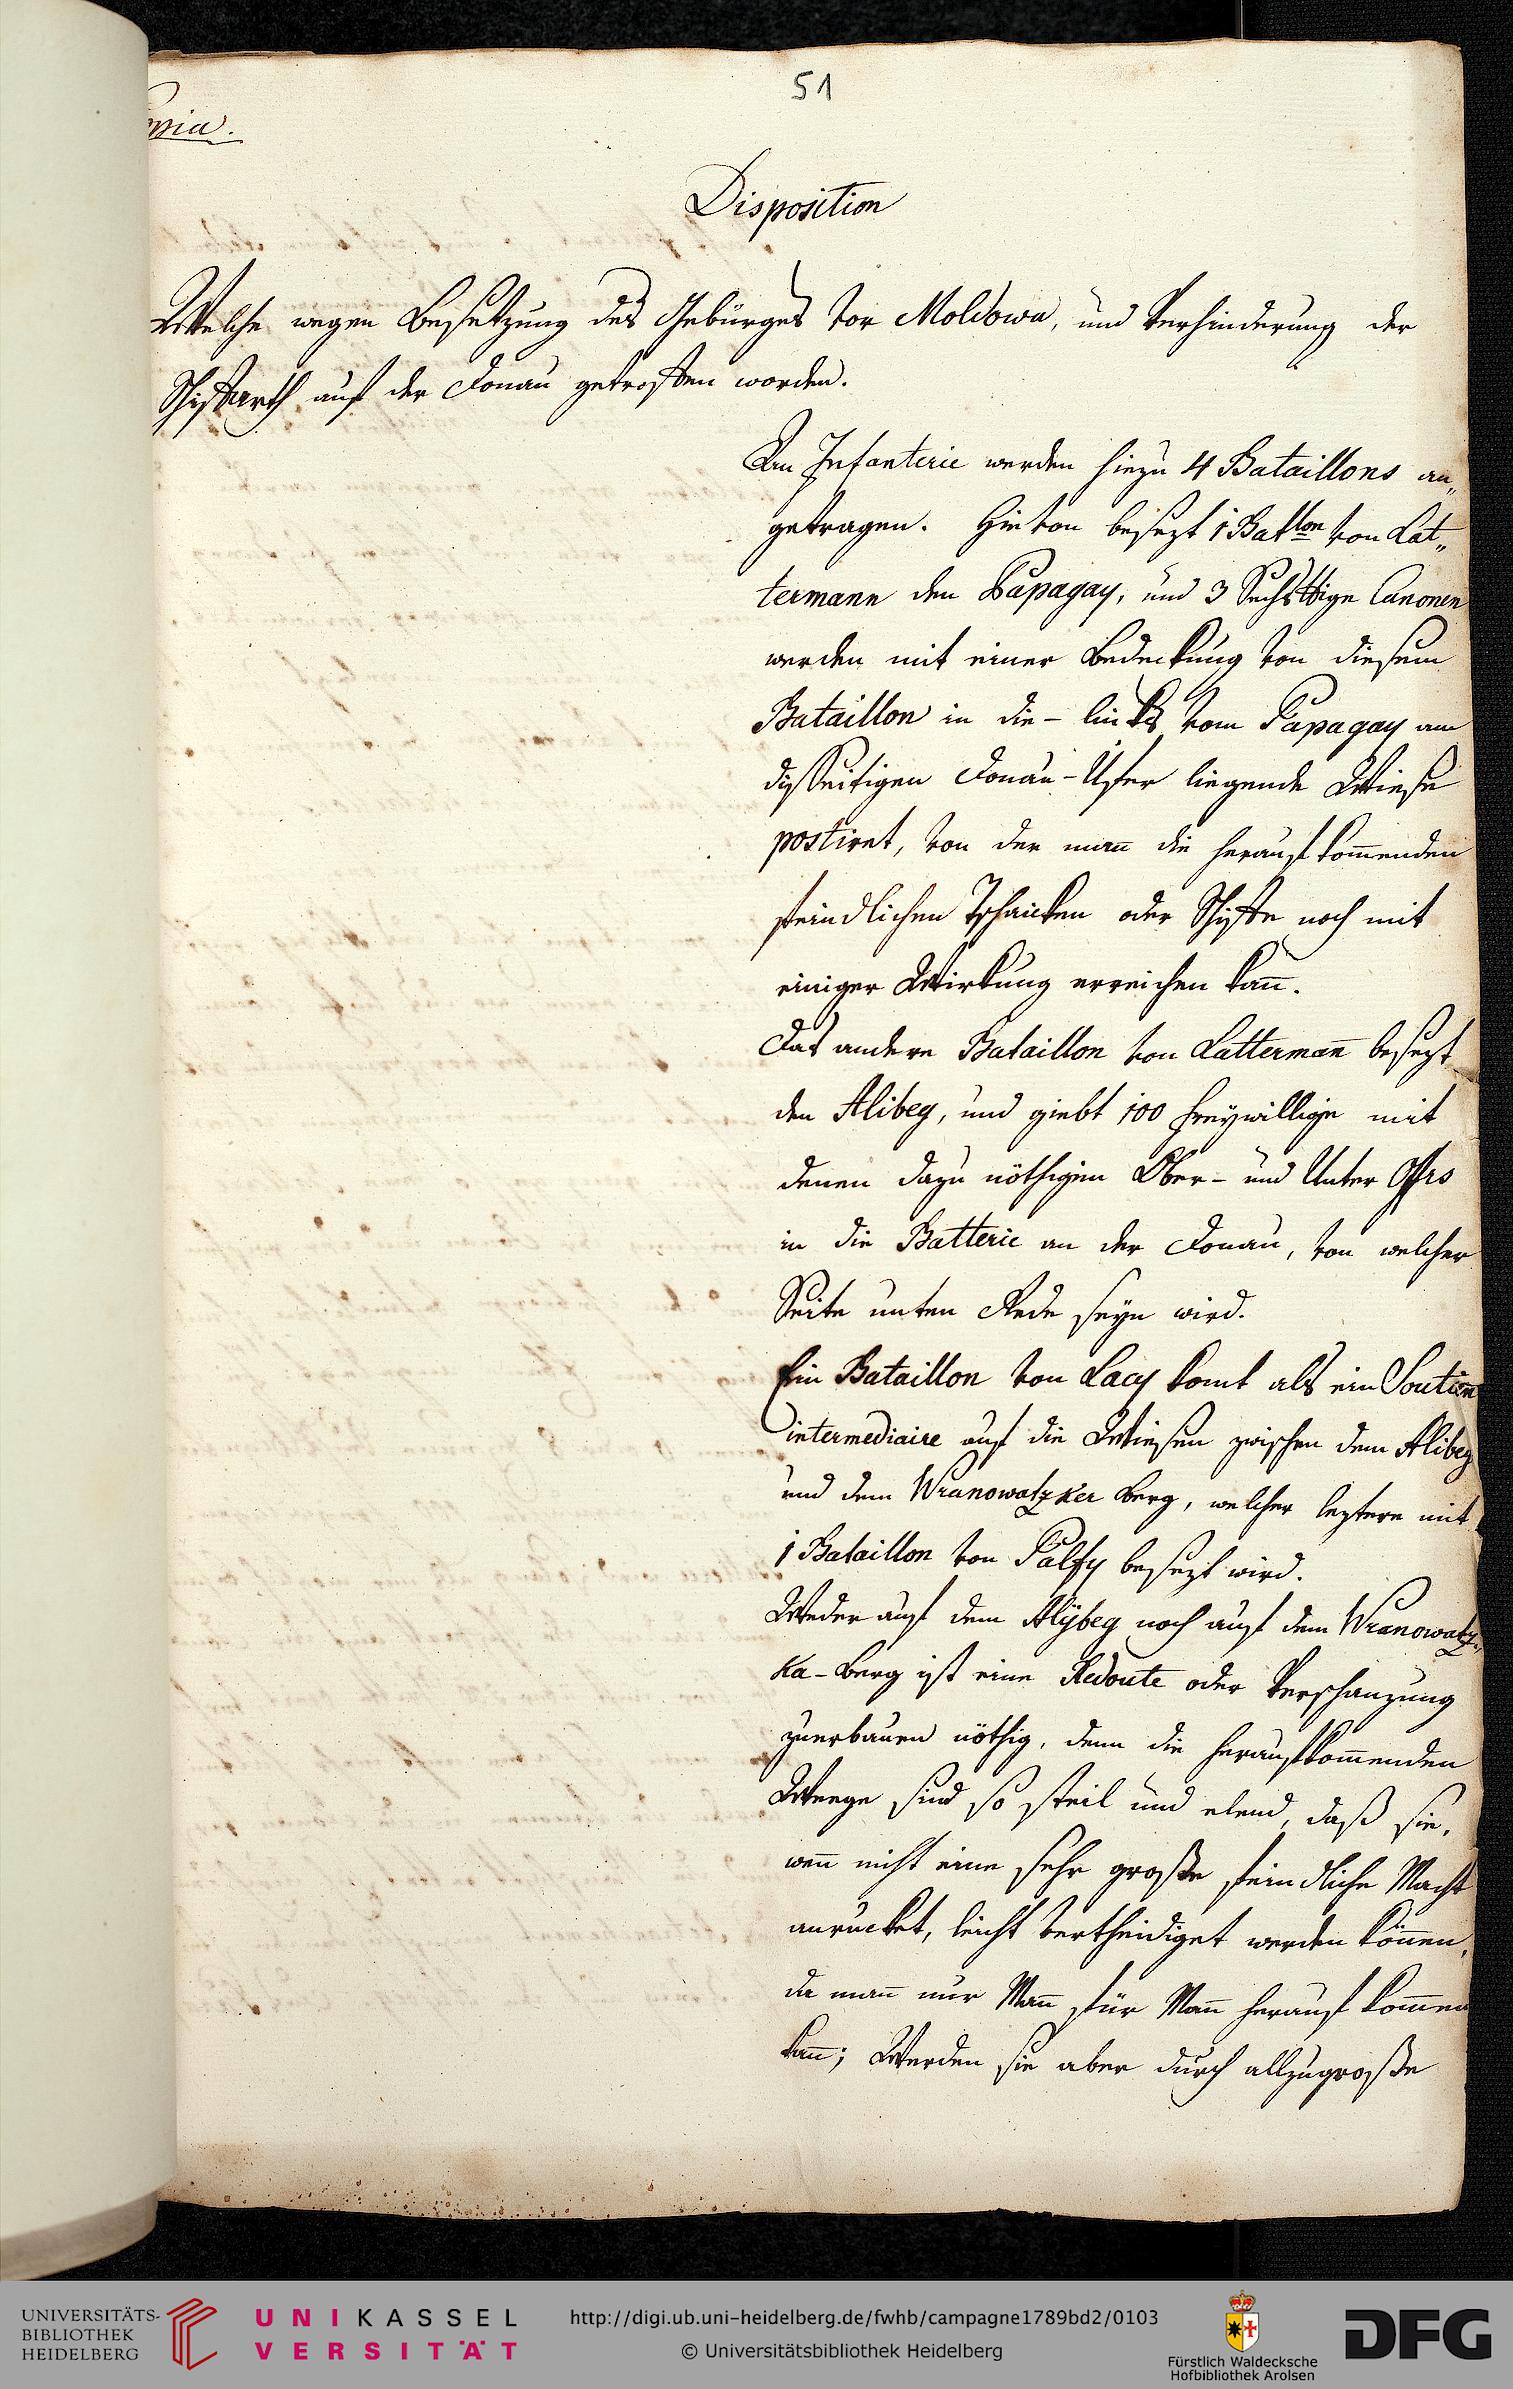 51
opia.
Disposition
Welche wegen Besetzung des Gebürges vor Moldowa, und Verhinderung der
Schiffarth auf der Donau getroffen worden.
An Infanterie werden hiezu 4 Bataillons an„
getragen. Hievon besezt 1 Batlon von Lat„
termann den Papagay, und 3 Sechs℔dige Canonen
werden mit einer Bedeckung von diesem
Bataillon in die – links vom Papagay am
disseitigen Donau-Ufer liegende Wiese
postiret, von der man die heraufkom̄enden
feindlichen Tschaicken oder Schiffe noch mit
einiger Wirkung erreichen kan̄.
Das andere Bataillon von Latterman̄ besezt
den Alibeg, und giebt 100 freywillige mit
denen dazu nöthigen Ober- und Unter Offrs
in die Batterie an der Donau, von welcher
Seite unten Rede seyn wird.
Ein Bataillon von Lacy komt als ein Soutien
intermediaire auf die Wiesen zwischen dem Alibeg
und dem Wranowatzker Berg, welcher leztere mit
1 Bataillon von Palfy besezt wird.
Weder auf dem Alÿbeg noch auf dem Wranowatz„
ka-Berg ist eine Redoute oder Verschanzung
zuerbauen nöthig, denn die heraufkom̄enden
Weege sind so steil und elend, daß sie,
wen̄ nicht eine sehr große feindliche Macht
anrucket, leicht vertheidiget werden kön̄en,
da man̄ nur Man̄ für Man̄ herauf kom̄en
kan̄; Werden sie aber durch allzugroße
UNIVERSITÄTS-
BIBLIOTHEK
HEIDELBERG
UNIKASSEL
VERSITÄT
http://digi.ub.uni-heidelberg.de/fwhb/campagne1789bd2/0103
© Universitätsbibliothek Heidelberg
Fürstlich Waldecksche
Hofbibliothek Arolsen
DFG